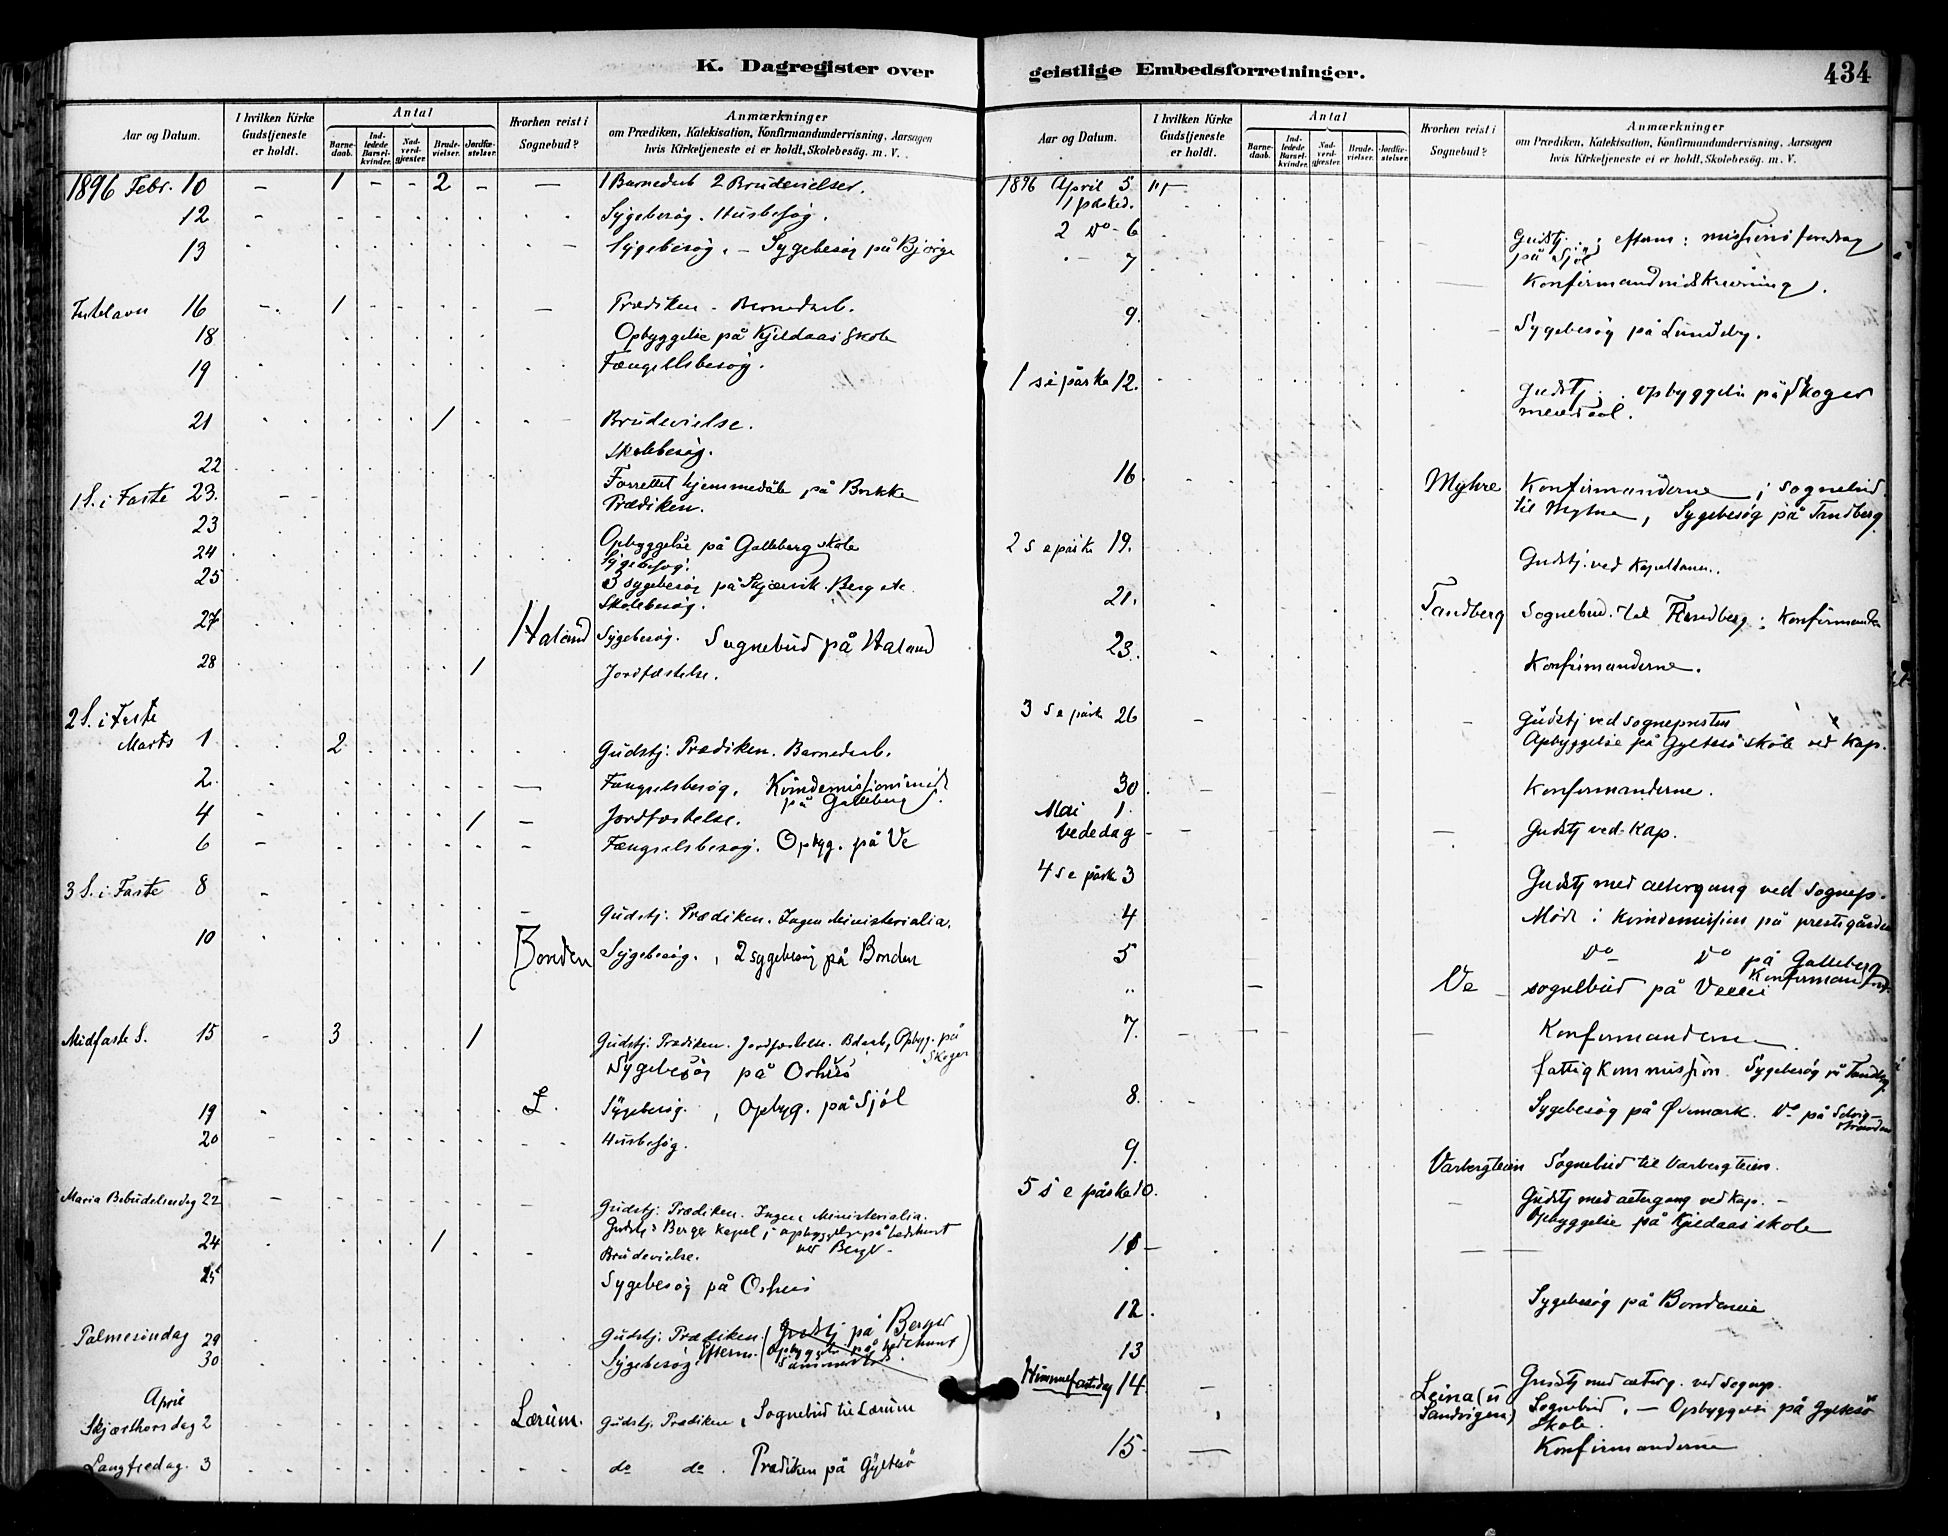 K. Dagregister over geistlige Embedsforretninger.
434
Aar og Datum.
I hvilken Kirke Gudstjeneste er holdt.
Antal
Barnedaab.
Indledede Barselkvinder.
Nadverdgjester
Brudevielser.
Jordfæstelser.
Hvorhen reist i Sognebud?
Anmærkninger
om Prædiken, Katekisation, Konfirmandundervisning, Aarsagen
hvis Kirketjeneste ei er holdt, Skolebesøg. m. V.
1896 Febr. 10 – 1 – – 2 – – 1 Barnedaab 2 Brudevielser.
12 Sygebesøg. Husbesøg.
13 Sygebesøg. – Sygebesøg på Bjørge
Fastelavn 16 1 Prædiken – Barnedaab.
18 Opbyggelse på Kjeldaas Skole
19 Fængselsbesøg.
21 1 Brudevielse.
22 Skolebesøg.
Forrettet hjemmedåb på Bukke
1 S. i Faste 23. – – Prædiken.
23 Opbyggelse på Galleberg skole
24 Sygebesøg.
25 3 sygebesøg på Skjærvik. Berg etc
Skolebesøg.
27 Haland Sygebesøg. Sognebud på Haland
28 1 Jordfæstelse.
2 S. i Faste
Marts 1 2 Gudstj: Prædiken. Barnedaab.
2. – Fængselsbesøg. Kvindemissionsmøde
på Galleberg.
4 1 – Jordfæstelse.
6 – Fængselsbesøg. Opbyg. på Ve
3 S. i Faste 8 – Gudstj. Prædiken. Ingen Ministerialia.
10 Bonden Sygebesøg., 2 sygebesøg på Bonden
Midfaste S. 15 – 3 1 Gudstj. Prædiken. Jordfæstelse. Bdaab, Opbyg. på
Skoger
Sygebesøg på Oshus
19 Sygebesøg., Opbyg. på Sjøl
20 Husbesøg.
Maria Bebudelsesdag 22 – Gudstj: Prædiken. Ingen Ministerialia.
Gudstj i Berger kapel; opbyggelse på bedehuset
ved Berger
24 1 Brudevielse.
25 Sygebesøg på Oshus
Palmesøndag 29 Gudstj: Prædiken. (Gudstj på Berger
30 Sygebesøg. Efterm. Opbyggelse på bedehuset
sammesteds)
April
Skjærthorsdag 2 Lærum. Gudstj. Prædiken, Sognebud til Lærum
Langfredag. 3 do do. Prædiken på Gyltesø
Aar og Datum.
I hvilken Kirke Gudstjeneste er holdt.
Antal
Barnedaab.
Indledede Barselkvinder.
Nadverdgjester
Brudevielser.
Jordfæstelser.
Hvorhen reist i Sognebud?
Anmærkninger
om Prædiken, Katekisation, Konfirmandundervisning, Aarsagen
hvis Kirketjeneste ei er holdt, Skolebesøg. m. V.
1896 April 5
1 påsked.
2 do – 6 Gudstj. ; efterm: missionsforedrag
på Sjøl
7 Konfirmandindskrivning.
9. Sygebesøg på Lundeby.
1 s e påske 12. Gudstj; opbyggelse på Skoger
menighed.
16 Myhre Konfirmanderne; sognebud
til Myhre, Sygebesøg på Tandberg
2 s e påske 19. Gudstj. ved Kapellanen.
21. Tandberg Sognebud til Tandberg; Konfirmander
23. Konfirmanderne.
3 s e påsk 26 – Gudstj ved sognepresten
Opbyggelse på Gyltesø skole ved Kap.
30 Konfirmanderne.
Mai 1.
bededag Gudstj ved Kap.
4 s e påske 3 Gudstj med altergang ved sognep.
4 Møde i Kvindemission på prestegården
5 do do på Galleberg
Konfirmand
" Ve sognebud på
7. Konfirmanderne
fattigkommission. Sygebesøg på Tandbg
8. Sygebesøg på Øvmark. do på Selvig-
stranden
9. Varbergteien Sognebud til Varbergteien.
5 s e påske 10. – Gudstj med altergang ved Kap. –
Opbyggelse på Kjeldaas skole
11 –
12. Sygebesøg på Bondeneie
13
Himmelfartsdag 14 – Gudstj med alterg. ved Sognep.
Leina (u
Sandvigen) Sognebud. – Opbyggelse på Gyltesø
Skole.
15. – Konfirmanderne